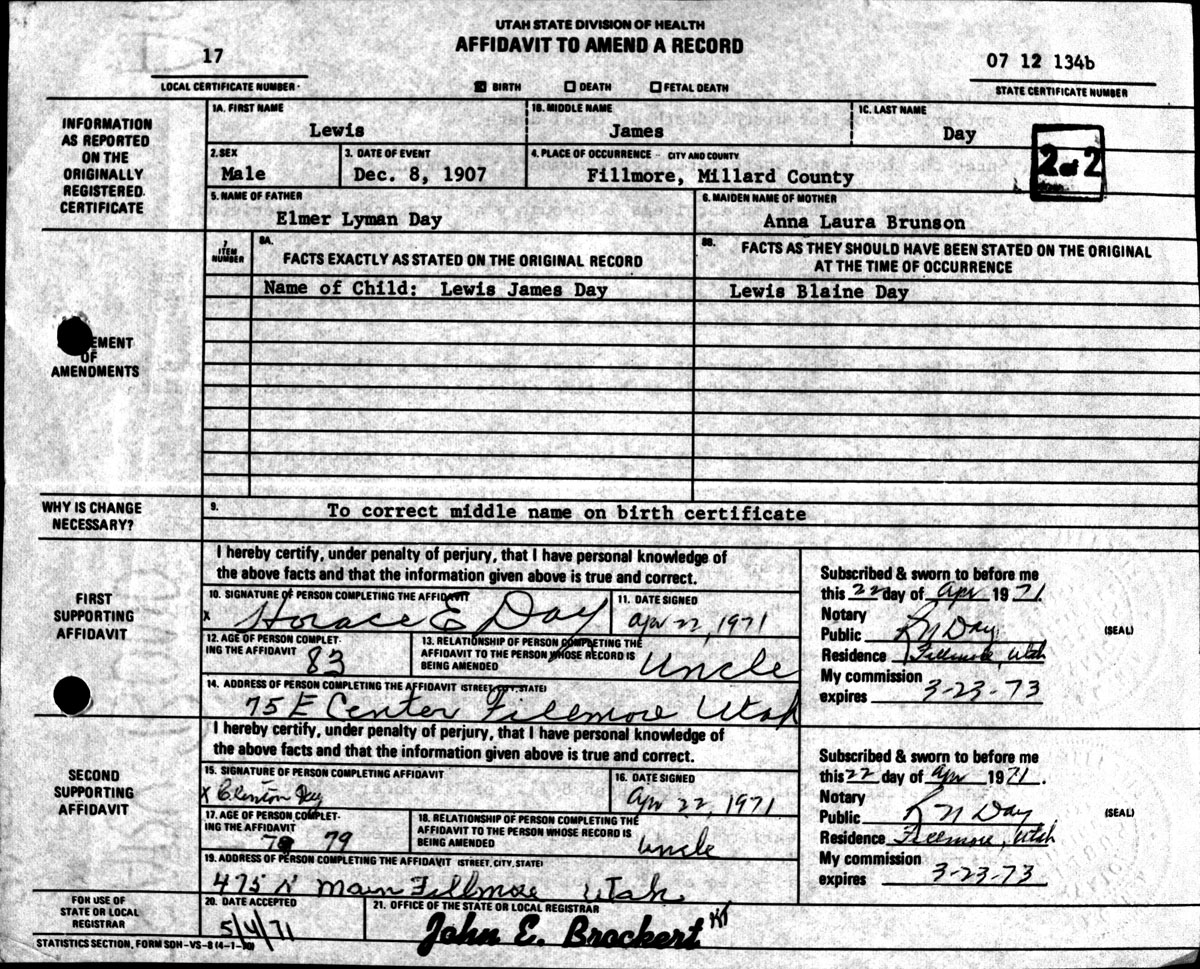 UTAH STATE DIVISION OF HEALTH
AFFIDAVIT TO AMEND A RECORD
17
LOCAL CERTIFICATE NUMBER
BIRTH DEATH FETAL DEATH
07 12 134b
STATE CERTIFICATE NUMBER
INFORMATION
AS REPORTED
ON THE
ORIGINALLY
REGISTERED
CERTIFICATE
1A. FIRST NAME
Lewis
1B. MIDDLE NAME
James
1C. LAST NAME
Day
2 of 2
2. SEX
Male
3. DATE OF EVENT
Dec. 8, 1907
4. PLACE OF OCCURRENCE - CITY AND COUNTY
Fillmore, Millard County
5. NAME OF FATHER
Elmer Lyman Day
6. MAIDEN NAME OF MOTHER
Anna Laura Brunson
OF
AMENDMENTS
7
ITEM
NUMBER
8A.
FACTS EXACTLY AS STATED ON THE ORIGINAL RECORD
8B. FACTS AS THEY SHOULD HAVE BEEN STATED ON THE ORIGINAL
AT THE TIME OF OCCURRENCE
Name of Child: Lewis James Day
Lewis Blaine Day
WHY IS CHANGE
NECESSARY?
9. To correct middle name on birth certificate
FIRST
SUPPORTING
AFFIDAVIT
I hereby certify, under penalty of perjury, that I have personal knowledge of
the above facts and that the information given above is true and correct.
10. SIGNATURE OF PERSON COMPLETING THE AFFIDAVIT
x Horace E Day
11. DATE SIGNED
Apr 22, 1971
12. AGE OF PERSON COMPLET-
ING THE AFFIDAVIT 83
13. RELATIONSHIP OF PERSON COMPLETING THE
AFFIDAVIT TO THE PERSON WHOSE RECORD IS
BEING AMENDED
Uncle
14. ADDRESS OF PERSON COMPLETING THE AFFIDAVIT (STREET, CITY, STATE)
75 E Center Fillmore Utah
Subscribed & sworn to before me
this 22 day of Apr 1971.
Notary
Public R N Day
Residence Fillmore, Utah
My commission
expires 3-23-73
(SEAL)
SECOND
SUPPORTING
AFFIDAVIT
I hereby certify, under penalty of perjury, that I have personal knowledge of
the above facts and that the information given above is true and correct.
15. SIGNATURE OF PERSON COMPLETING AFFIDAVIT
x Clinton Day
16. DATE SIGNED
Apr 22, 1971
17. AGE OF PERSON COMPLET-
ING THE AFFIDAVIT
79
18. RELATIONSHIP OF PERSON COMPLETING THE
AFFIDAVIT TO THE PERSON WHOSE RECORD IS
BEING AMENDED
Uncle
19. ADDRESS OF PERSON COMPLETING THE AFFIDAVIT (STREET, CITY, STATE)
475 N Main Fillmore Utah
Subscribed & sworn to before me
this 22 day of Apr 1971.
Notary
Public R N Day
Residence Fillmore, Utah
My commission
expires 3-23-73
(SEAL)
FOR USE OF
STATE OR LOCAL
REGISTRAR
20. DATE ACCEPTED
5/4/71
21. OFFICE OF THE STATE OR LOCAL REGISTRAR
John E. Brockert
STATISTICS SECTION, FORM SDH-VS-8